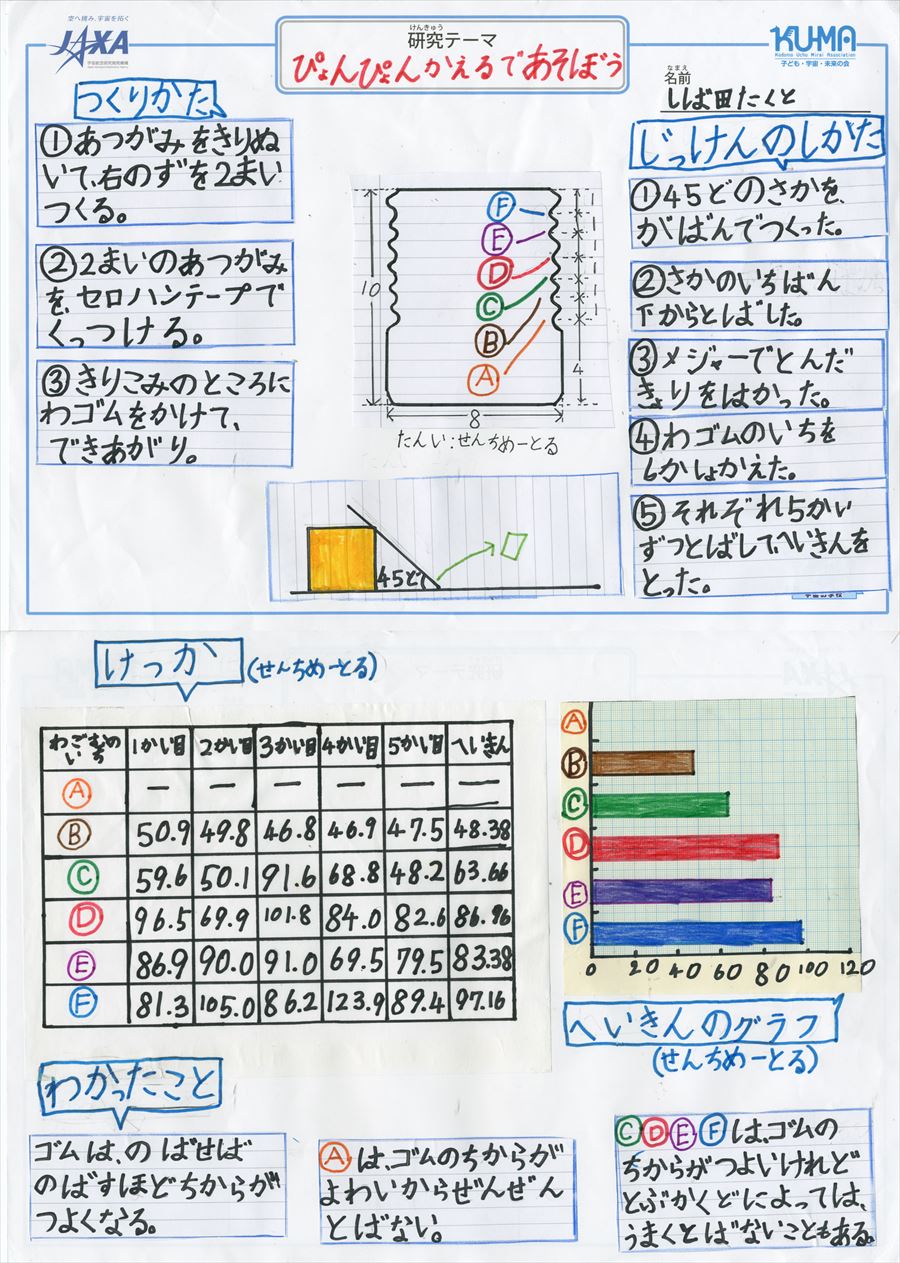 空へ挑み、宇宙を拓く
JAXA
けんきゅう
研究テーマ
ぴょんぴょんかえるであそぼう
KU-MA
Kodomo Uchu Mirai Association
子ども・宇宙・未来の会
なまえ
名前
ししば田たくと
つくりかた
①あつがみをきりぬ
いて、右のずを2まい
つくる。
②2まいのあつがみ
を、セロハンテープで
くっつける。
③きりこみのところに
わゴムをかけて、
できあがり。
F
E
D
C
B
A
10
8
1
1
1
1
1
4
たんい:せんちめーとる
45ど
じっけんのしかた
①45どのさかを、
がばんでつくった。
②さかのいちばん
下からとばした。
③メジャーでとんだ
きょりをはかった。
④わゴムのいちを
6かしょかえた。
⑤それぞれ5かい
ずつとばして、へいきんを
とった。
けっか
(せんちめーとる)
わごむのいち 1かい目 2かい目 3かい目 4かい目 5かい目 へいきん
A ー ー ー ー ー ー
B 50.9 49.8 46.8 46.9 47.5 48.38
C 59.6 50.1 91.6 68.8 48.2 63.66
D 96.5 69.9 101.8 84.0 82.6 86.96
E 86.9 90.0 91.0 69.5 79.5 83.38
F 81.3 105.0 86.2 123.9 89.4 97.16
A
B
C
D
E
F
0 20 40 60 80 100 120
へいきんのグラフ
(せんちめーとる)
わかったこと
ゴムは、のばせば
のばすほどちからが
つよくなる。
Aは、ゴムのちからが
よわいからぜんぜん
とばない。
CDEFは、ゴムの
ちからがつよいけれど
とぶかくどによっては、
うまくとばないこともある。